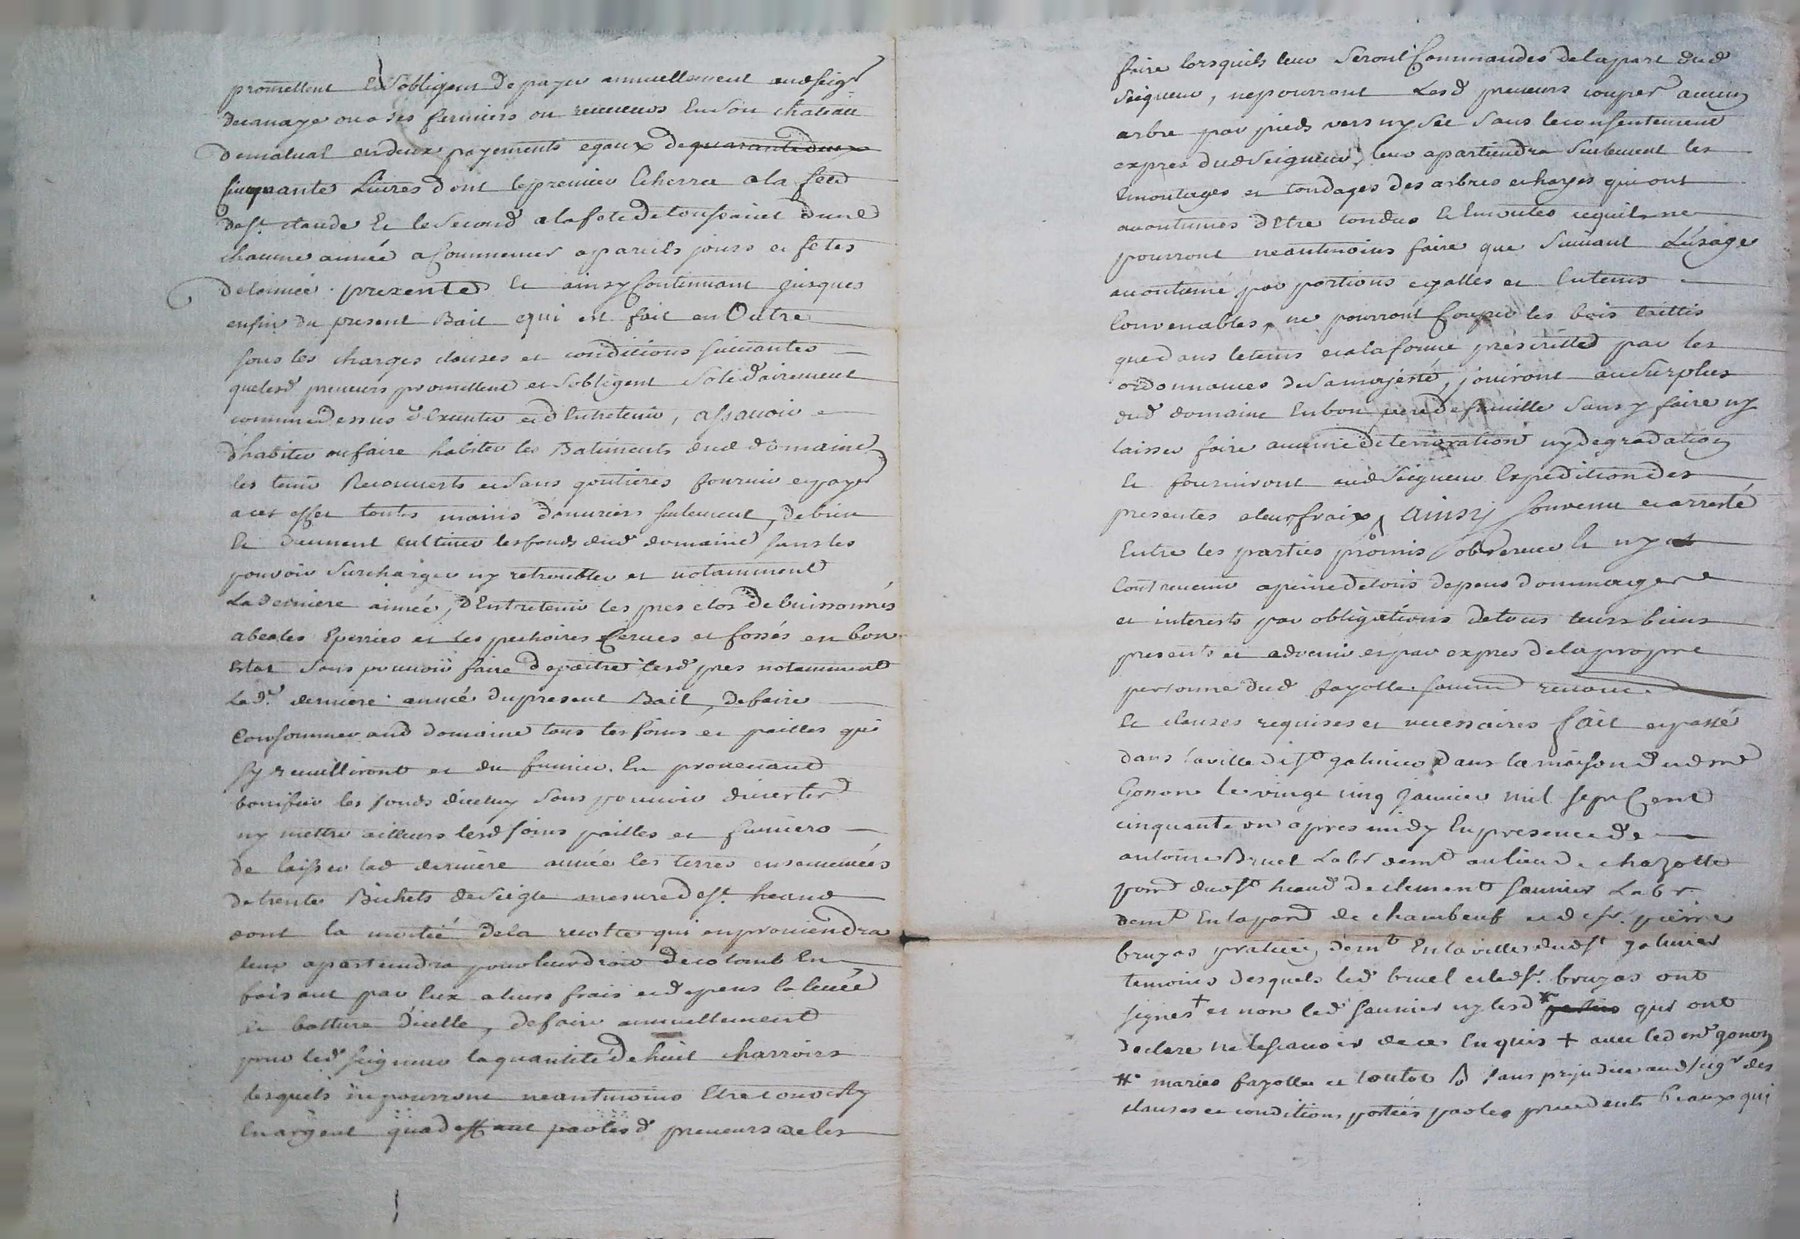 promettent et s'obligent de payer annuellement aud seigr
ou a ses fermiers ou receveurs en son chateau
de matual en deux payements egaux de quarante deux
cinquante Livres dont le premier echerra a la fete
de st. claude et le second a la fete de toussaint d'une
chacune année a Commencer a pareils jours et fetes
de lannée presente et ainsy Continuant jusques
enfin du present Bail qui est fait en Outre
sous les charges clauses et conditions suivantes
que lesd preneurs promettent et sobligent solidairement
comme dessus d'Executer et d'Entretenir, assavoir
d'habiter ou faire habiter les Batiments dud domaine
les tenir Recouverts et sans goutieres fournir et payer
a cet effet toutes mains d'ouvriers seulement, de bien
et deument cultiver les fonds dud domaine sans les
pouvoir surcharger ny retroubler et notamment
La derniere année, d'Entretenir les pres clos de buissonnés
et les pechoires et fossés en bon
Estat sans pouvoir faire depaitre lesd pres notamment
Lad. derniere année du present Bail, de faire
Consommer aud domaine tous les foins et pailles qui
sy recuilliront et du fumier En provenant
bonifier les fonds d'iceluy sans pouvoir divertir
ny mettre ailleurs lesd foins pailles et fumiers
de laisser lad derniere année les terres ensemencées
de trente Bichets de seigle mesure de st. heand
dont la moitié de la recolte qui en proviendra
leur apartiendra pour leur droit de colonb En
faisant par Eux a leurs frais et depens la levée
et batture d'icelle, de faire annuellement
pour led. seigneur la quantité de huit charroirs
lesquels ne pourront neantmoins Etre convertis
En argent qua deffaut par lesd preneurs de les
faire lorsquils leur seront Commandes de la part dud
seigneur, ne pourront Lesd preneurs couper aucun
arbre par pieds vers ny sec sans le consentement
expres dud seigneur, leur apartiendra seulement les
Emoutages et tondages des arbres et hayes qui ont
accoutumés d'Etre tondus et Emoutés ce quils ne
pourront neantmoins faire que suivant L'usage
accoutumé par portions egalles et En tems
Convenables, ne pourront Couper les bois taillis
que dans le tems et a la forme prescritte par les
ordonnances de sa majesté, jouiront au surplus
dud domaine En bon pere de famille sans y faire ny
laisser faire aucune deterioration ny degradation
et fourniront aud seigneur Expedition des
presentes a leurs fraix, ainsy Convenu et arresté
Entre les parties promis observer et ny
Contrevenir a peine de tous depens dommages
et interests par obligations de tous leurs biens
presents et advenir et par expres de la propre
personne dud fayolle soumis renonc
et clauses requises et necessaires fait et passé
dans la ville de st galmier Dans la maison dud me
Gonon le vingt cinq janvier mil sept Cent
cinquante un apres midy En presence de
antoine Bruel Labr demt au lieu de chazotte
parr dud st heand de clement saunier Labr
demt En la parr de chambeuf et de sr. pierre
bruyas praticien demt En la ville dud st galmier
temoins desquels led bruel et led sr. bruyas ont
signes + et non led saunier ny lesd # qui ont
declare ne le scavoir de ce Enquis + avec led me gonon
# maries fayolle et sans prejudice aud seigr des
clauses et conditions portées par les precedents beaux qui